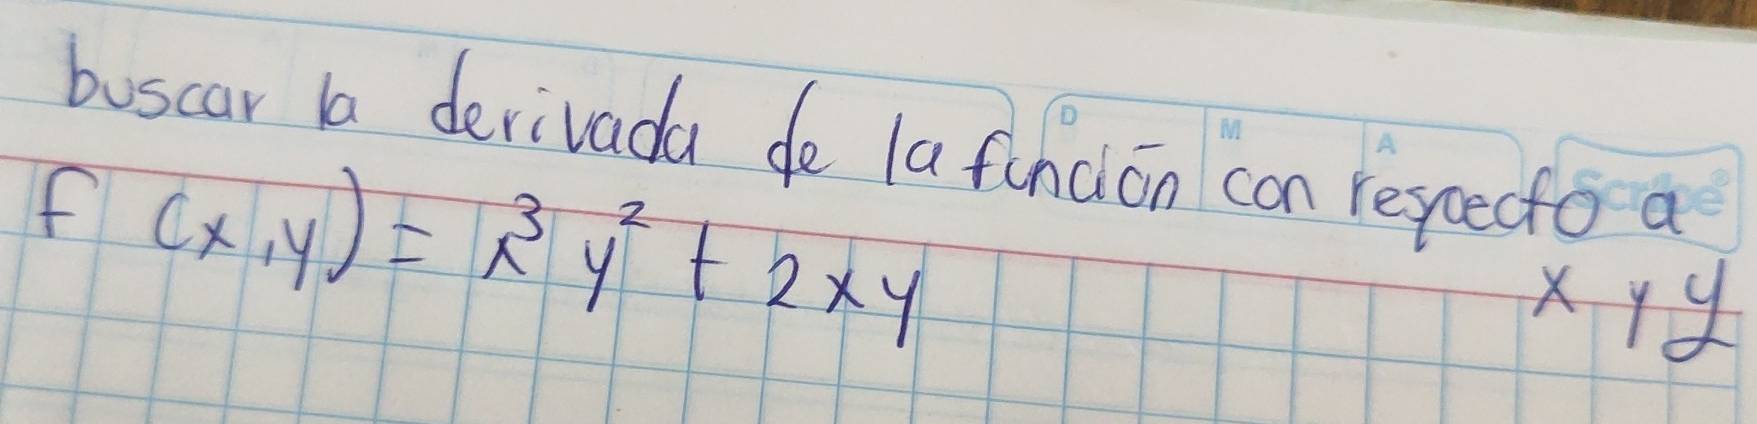 buscar la derivada de la función con respecto a
x y y
f (x,y) = x³y² + 2xy
D M A
Scribe®